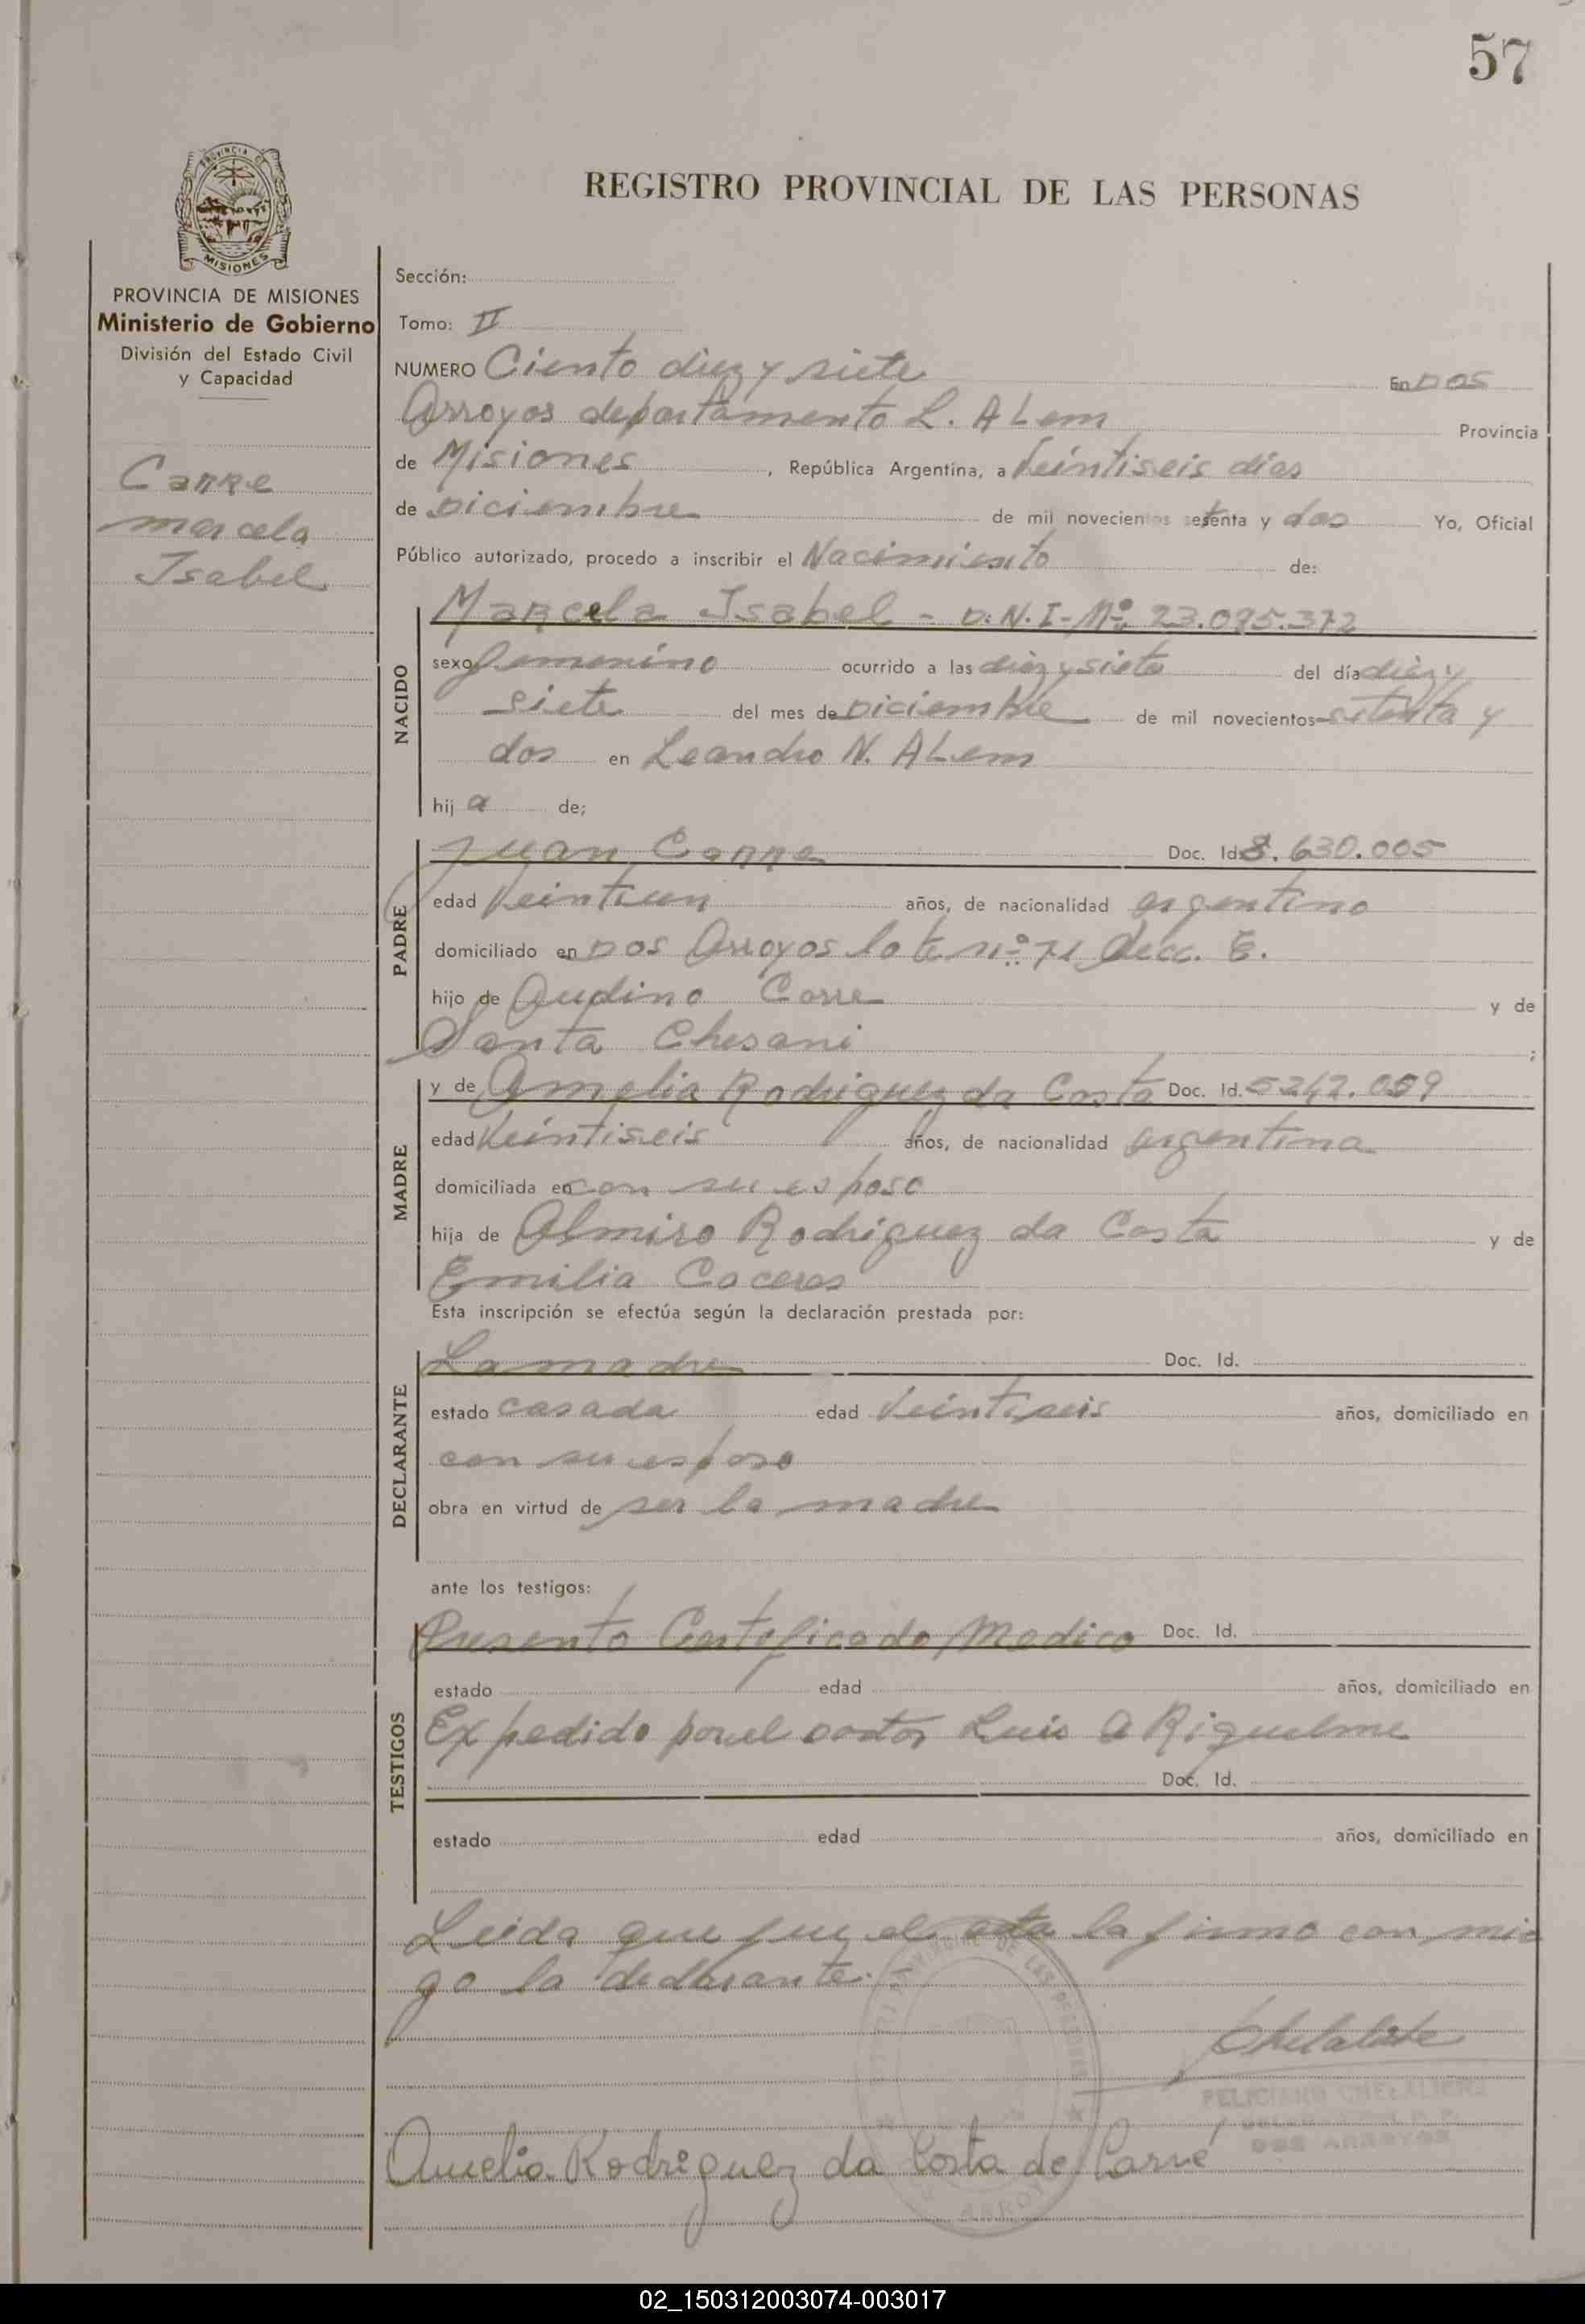 57
PROVINCIA DE
MISIONES
REGISTRO PROVINCIAL DE LAS PERSONAS
PROVINCIA DE MISIONES
Ministerio de Gobierno
División del Estado Civil
y Capacidad
Carre
Marcela
Isabel
Sección:
Tomo: II
NUMERO Ciento diez y siete En Dos
Arroyos departamento L. ALem Provincia
de Misiones, República Argentina, a Veintiseis dias
de Diciembre de mil novecientos setenta y dos Yo, Oficial
Público autorizado, procedo a inscribir el Nacimiento de:
NACIDO
Marcela Isabel - D.N.I-Nº 23.095.372
sexo femenino ocurrido a las diez y siete del día diez y
siete del mes de Diciembre de mil novecientos setenta y
dos en Leandro N. ALem
hij a de;
PADRE
Juan Carre Doc. Id. 8.630.005
edad Veintiun años, de nacionalidad argentino
domiciliado en Dos Arroyos lote nº 71 Secc. E.
hijo de Audino Carre y de
Santa Chesani ;
MADRE
y de Amelia Rodriguez da Costa Doc. Id. 5242.059
edad Veintiseis años, de nacionalidad argentina
domiciliada en con su esposo
hija de Almiro Rodriguez da Costa y de
Emilia Caceres
Esta inscripción se efectúa según la declaración prestada por:
DECLARANTE
La madre Doc. Id.
estado casada edad Veintiseis años, domiciliado en
con su esposo
obra en virtud de ser la madre
ante los testigos:
TESTIGOS
Presento Certificado Medico Doc. Id.
estado edad años, domiciliado en
Expedido por el doctor Luis A Riquelme
Doc. Id.
estado edad años, domiciliado en
Leida que fue el acta la firma con mi
go la declarante.
DOS ARROYOS
Amelia Rodriguez da Costa de Carre
02_150312003074-003017